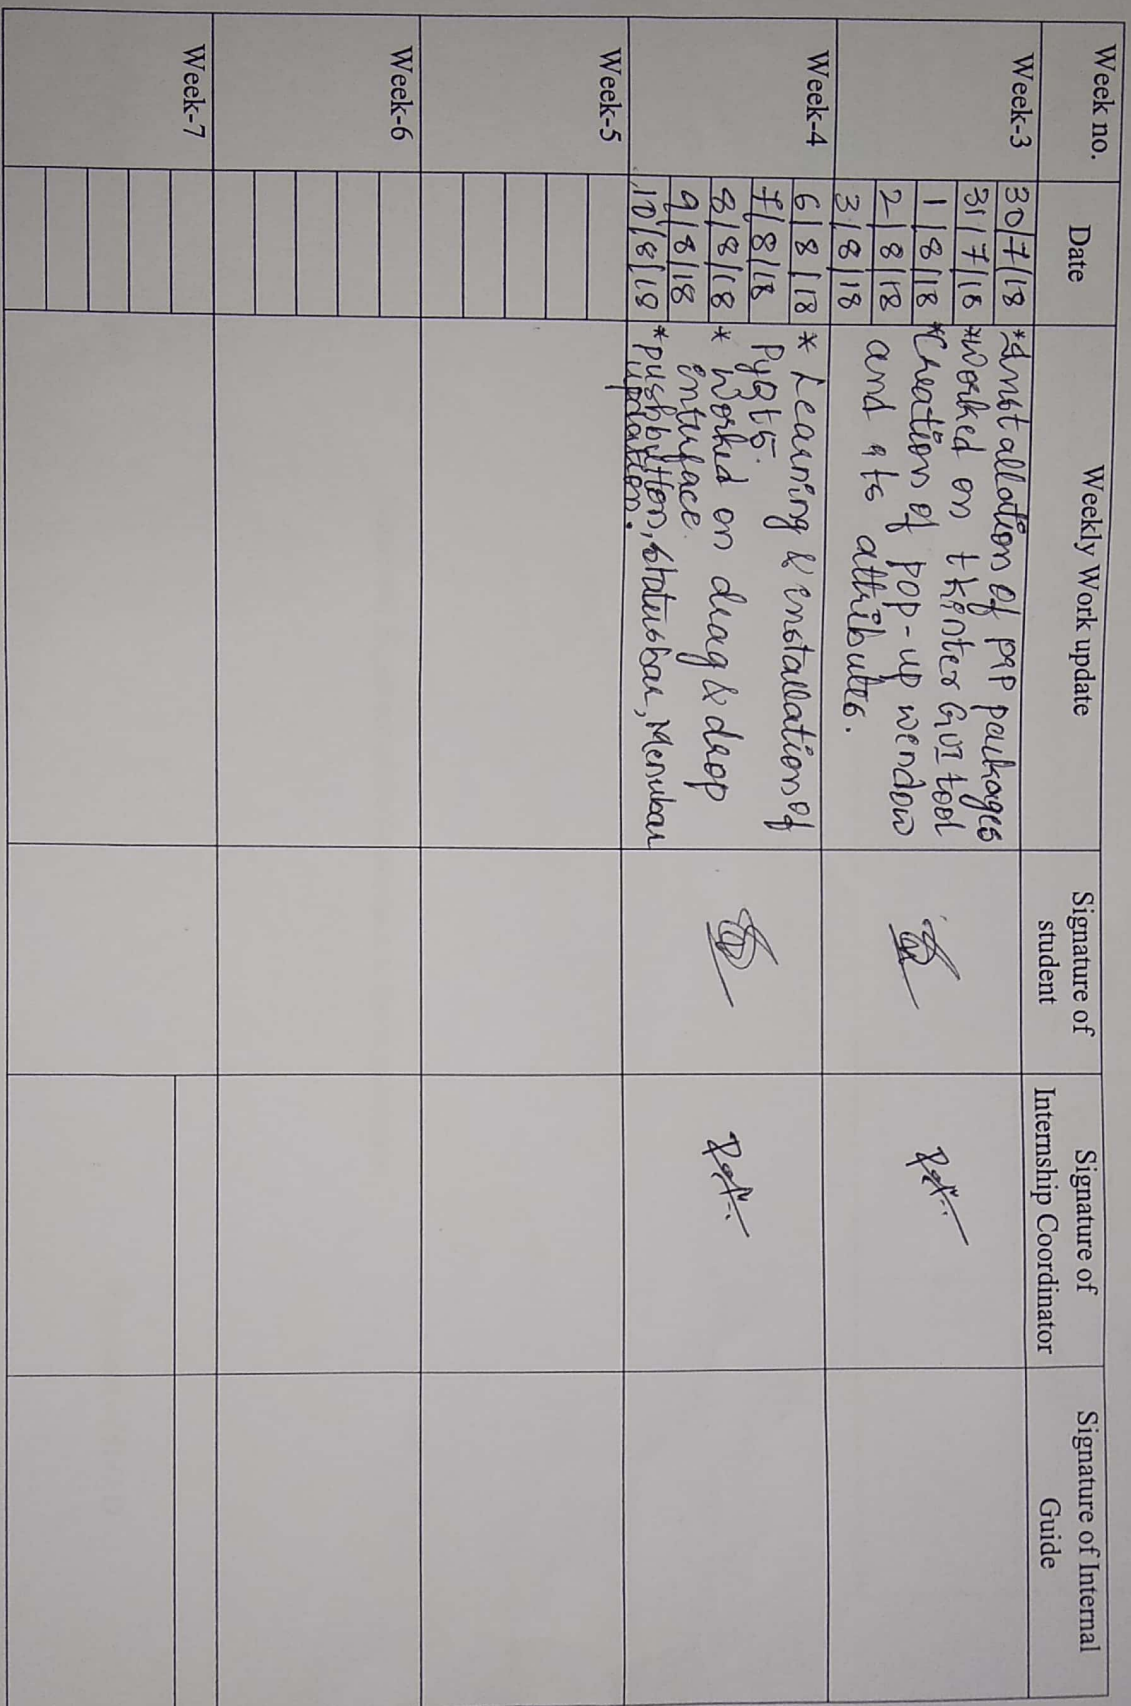 Week no.
Date
Weekly Work update
Signature of
student
Signature of
Internship Coordinator
Signature of Internal
Guide
Week-3
30/7/18
31/7/18
1/8/18
2/8/18
3/8/18
*Installation of pip packages
*Worked on tkinter GUI tool
*Creation of pop-up window
and its attributes.
Week-4
6/8/18
7/8/18
8/8/18
9/8/18
10/8/18
* Learning & installation of
PyQt5.
* Worked on drag & drop
interface.
*pushbutton, statusbar, Menubar
updation.
Week-5
Week-6
Week-7